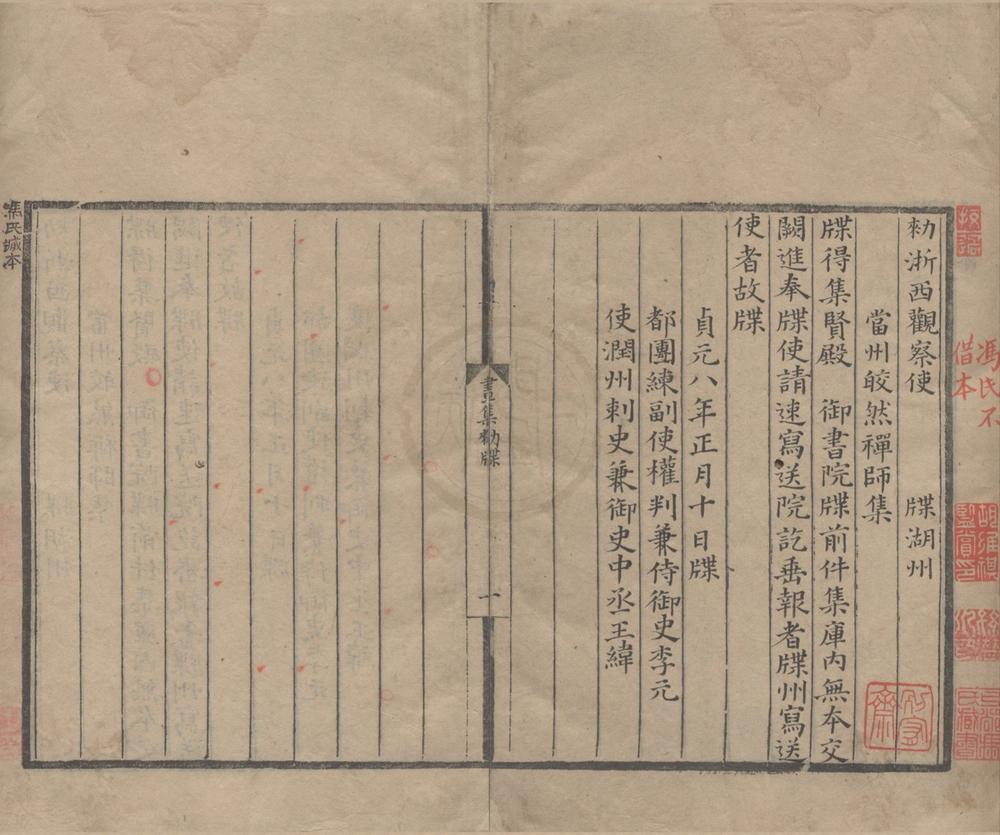 勑浙西觀察使 牒湖州
當州皎然禪師集
牒得集賢殿 御書院牒前件集庫内無本交
闕進奉牒使請速寫送院訖垂報者牒州寫送
使者故牒
貞元八年正月十日牒
都團練副使權判兼侍御史李元
使潤州刺史兼御史中丞王緯
晝集勑牒
一
馮氏藏本
馮氏不
借本